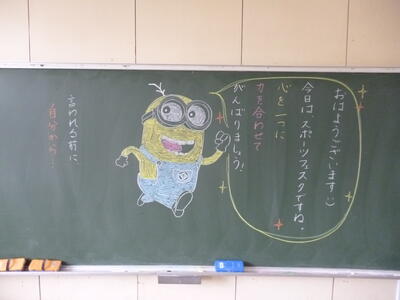 おはようございます:)
今日は、スポーツフェスタですね。
心を一つに
力を合わせて
がんばりましょう!
言われる前に、
自分から!